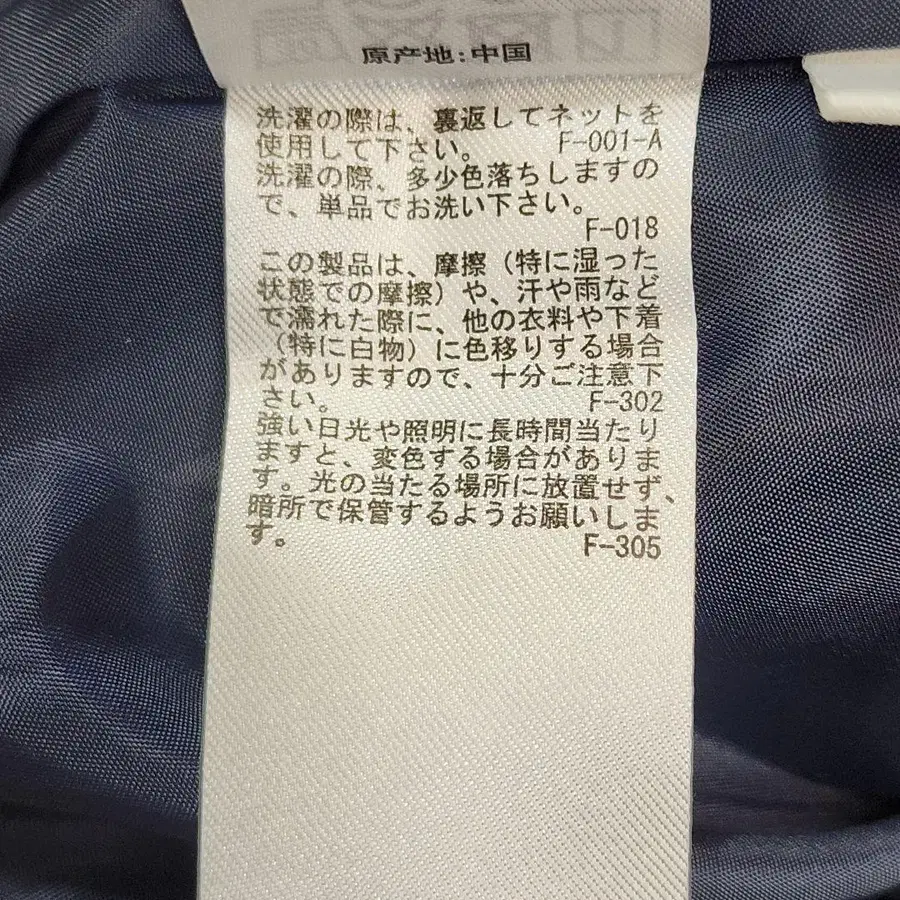 原产地:中国
洗濯の際は、裏返してネットを
使用して下さい。 F-001-A
洗濯の際、多少色落ちしますの
で、単品でお洗い下さい。
F-018
この製品は、摩擦（特に湿った
状態での摩擦）や、汗や雨など
で濡れた際に、他の衣料や下着
（特に白物）に色移りする場合
がありますので、十分ご注意下
さい。 F-302
強い日光や照明に長時間当たり
ますと、変色する場合がありま
す。光の当たる場所に放置せず、
暗所で保管するようお願いしま
す。 F-305